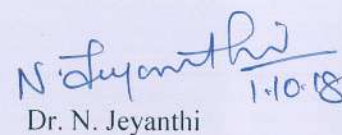 N. Jeyanthi
1.10.18
Dr. N. Jeyanthi